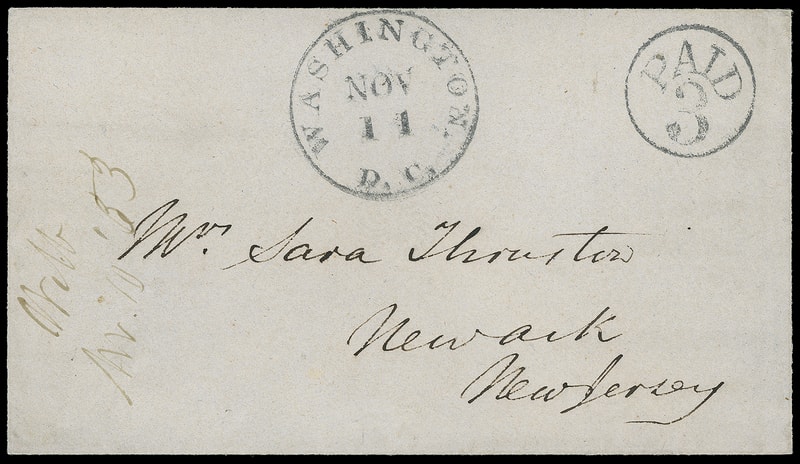 WASHINGTON
NOV
11
D.C.
PAID
3
Mrs. Sara Thruston
Newark
New Jersey
Nov. 10 '53